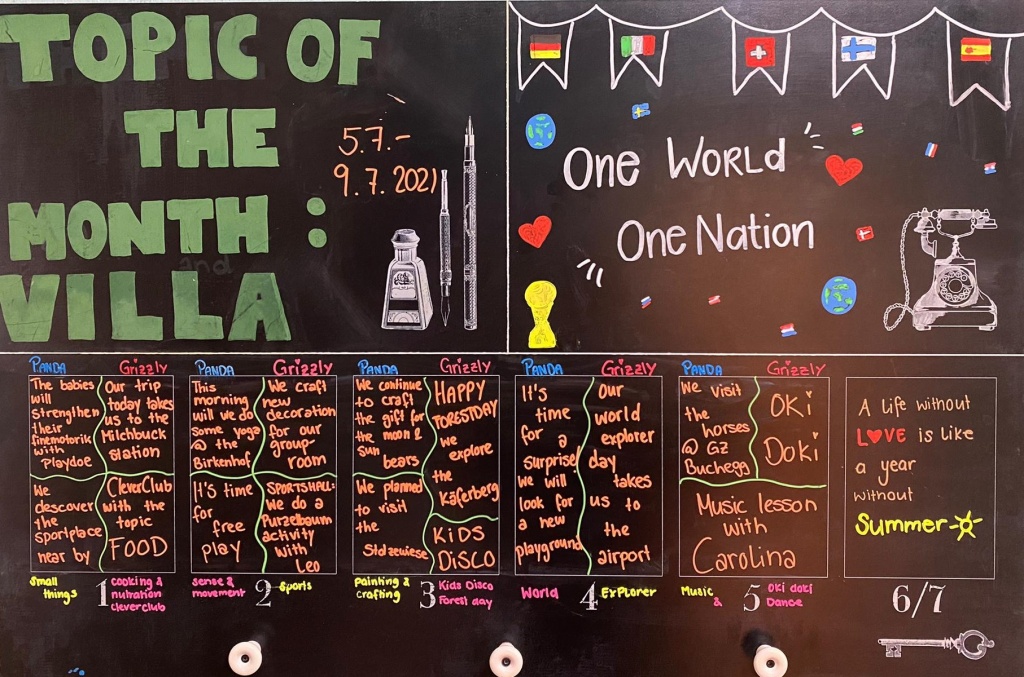 TOPIC OF
THE
MONTH :
VILLA
and
5.7.-
9.7.2021
One WORLd
One Nation
PANDA
The babies
will
strengthen
their
finemotorik
with
Playdoe
we
descover
the
sportplace
near by
Grizzly
Our trip
today takes
us to the
Milchbuck
station
CleverClub
with the
topic
FOOD
Small
things
1
cooking &
nutration
cleverclub
PANDA
This
morning
will we do
some yoga
@ the
Birkenhof
It's time
for
free
play
Grizzly
we craft
new
decoration
for our
group-
room
SPORTSHALL:
we do a
Purzelbaum
activity
with
Leo
sense &
movement
2
Sports
PANDA
we continue
to craft
the gift for
the moon &
sun
bears
we planned
to visit
the
Stolzewiese
Grizzly
HAPPY
FORESTDAY
we
explore
the
Käferberg
KiDS
DiSCO
Painting &
crafting
3
Kids Disco
Forest day
PANDA
It's
time
for a
surprise!
we will
look for
a new
playground
Grizzly
our
world
explorer
day
takes
us to
the
airport
World
4
Explorer
PANDA
we visit
the
horses
@ GZ
Buchegg
Grizzly
OKi
Doki
Music lesson
with
Carolina
Music
&
5
Oki doki
Dance
A life without
LOVE is like
a year
without
Summer
6/7